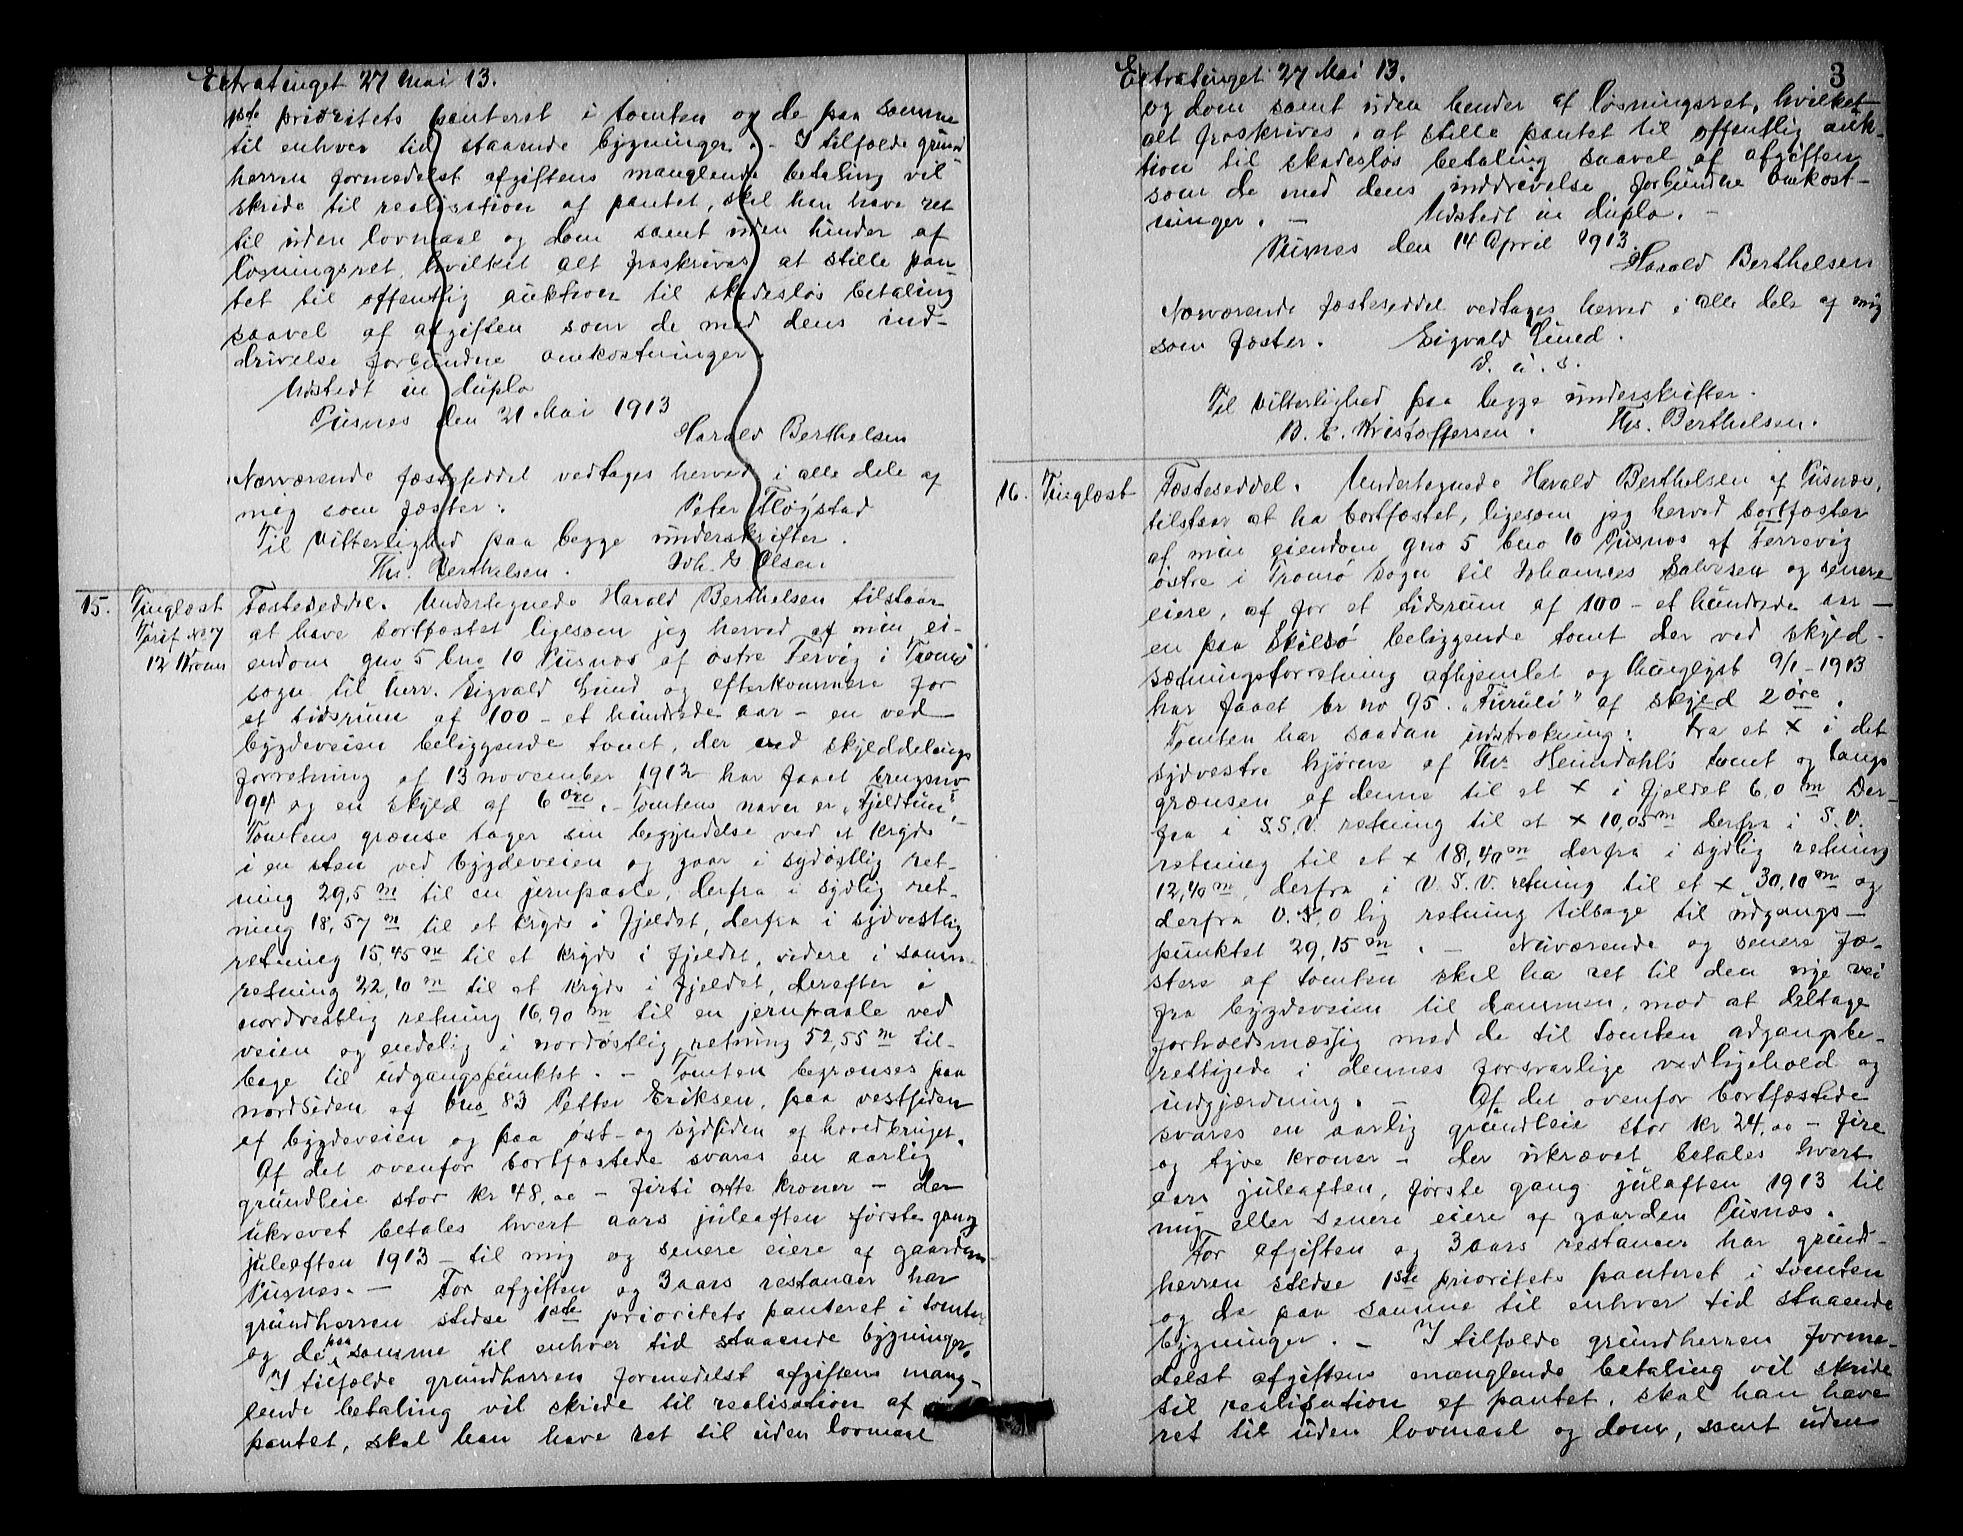 Extratinget 27 Mai 13.
1ste prioritets panteret i tomten og de paa samme
til enhver tid staaende bygninger. - I tilfælde grund-
herren formedelst afgiftens manglende betaling vil
skride til realisation af pantet, skal han have ret
til uden lovmaal og dom samt uden hinder af
løsningsret, hvilket alt fraskrives at stille pan-
tet til offentlig auktion til skadesløs betaling
saavel af afgiften som de med dens ind-
drivelse forbundne omkostninger.
Udstedt in duplo
Pusnes den 21 Mai 1913
Harald Berthelsen
Nærværende fæsteseddel vedtages herved i alle dele af
mig som fæster:
Peter Fløystad
Til vitterlighed paa begge underskrifter.
Ths. Berthelsen. Joh. G Olsen
15. Tinglæst Fæsteseddel. Undertegnede Harald Berthelsen tilstaar
at have bortfæstet ligesom jeg herved af min ei-
12 Kroner endom gno 5 bno 10 Pusnes af østre Tervig i Tromø
sogn til herr. Sigvald Lund og efterkommere for
et tidsrum af 100 - et hundrede aar - en ved
bygdeveien beliggende tomt, der ved skylddelings
forretning af 13 november 1912 har faaet brugsno
94 og en skyld af 6 øre. - Tomtens navn er "Fjeldtun".
Tomtens grænse tager sin begyndelse ved et kryds
i en sten ved bygdeveien og gaar i sydøstlig ret-
ning 29,5 m til en jernpaale, derfra i sydlig ret-
ning 18,57 m til et kryds i fjeldet, derfra i sydvestlig
retning 15,45 m til et kryds i fjeldet, videre i samme
retning 22,10 m til et kryds i fjeldet, derefter i
nordvestlig retning 16,90 m til en jernpaale ved
veien og endelig i nordøstlig retning 52,55 m til-
bage til udgangspunktet. - Tomten begrænses paa
nordsiden af bno 83 Petter Eriksen, paa vestsiden
af bygdeveien og paa øst- og sydsiden af hovedbruget.
Af det ovenfor bortfæstede svares en aarlig
grundleie stor kr 48,00 - firti otte kroner - der
ukrævet betales hvert aars juleaften første gang
juleaften 1913 - til mig og senere eiere af gaarden
Pusnes. - For afgiften og 3 aars restancer har
grundherren stedse 1ste prioritets panteret i tomten
og de paa samme til enhver tid staaende bygninger.
I tilfælde grundherren formedelst afgiftens mang-
lende betaling vil skride til realisation af
pantet, skal han have ret til uden lovmaal
Extratinget 27 Mai 13. 3
og dom samt uden hender af løsningsret, hvilket
alt fraskrives, at stille pantet til offentlig auk-
tion til skadesløs betaling saavel af afgiften
som de med dens inddrivelse forbundne omkost-
ninger. - Udstedt in duplo. -
Pusnes den 14 April 1913.
Harald Berthelsen
Nærværende fæsteseddel vedtages herved i alle dele af mig
som fæster. Sigvald Lund.
Til vitterlighed paa begge underskrifter.
B. C. Kristoffersen. Ths. Berthelsen.
16. Tinglæst Fæsteseddel. Undertegnede Harald Berthelsen af Pusnes,
tilstaar at ha bortfæstet, ligesom jeg herved bortfæster
af min eiendom gno 5 bno 10 Pusnes af Terrevig
østre i Tromø sogn til Johannes Salvesen og senere
eiere, af for et tidsrum af 100 - et hundrede aar -
en paa Skilsø beliggende tomt der ved skyld-
sætningsforretning afhjemlet og thinglyst 9/1 - 1913
har faaet br no 95. "Furuli" af skyld 2 øre.
Tomten har saadan udstrækning: Fra et x i det
sydvestre hjørne af Thv. Heimdahls tomt og langs
grænsen af denne til et x i fjeldet 6,0 m Der-
fra i S.S.V. retning til et x 10,05 m derfra i S.V.
retning til et x 18,40 m derfra i sydlig retning
12,40 m, derfra i V.S.V. retning til et x 30,10 m og
derfra lig retning tilbage til udgangs-
punktet 29,15 m. - Nuværende og senere fæ-
stere af tomten skal ha ret til den nye vei
fra bygdeveien til dammen, mod at deltage
forholdsmæssig med de til tomten adgangbe-
rettigede i dennes forsvarlige vedligehold og
indgjærdning. - Af det ovenfor bortfæstede
svares en aarlig grundleie stor kr 24,00 - fire
og tyve kroner - der ukrævet betales hvert
aars juleaften, første gang julaften 1913 til
mig eller senere eiere af gaarden Pusnæs.
For afgiften og 3 aars restancer har grund-
herren stedse 1ste prioritets panteret i tomten
og de paa samme til enhver tid staaende
bygninger. - I tilfælde grundherren forme-
delst afgiftens manglende betaling vil skride
til realisation af pantet, skal han have
ret til uden lovmaal og dom, samt uden